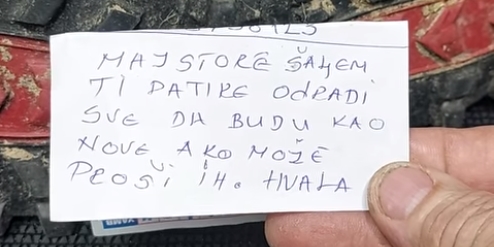 MAJSTORE ŠALJEM
TI PATIKE ODRADI
SVE DA BUDU KAO
NOVE AKO MOŽE
PROŠI IH. HVALA